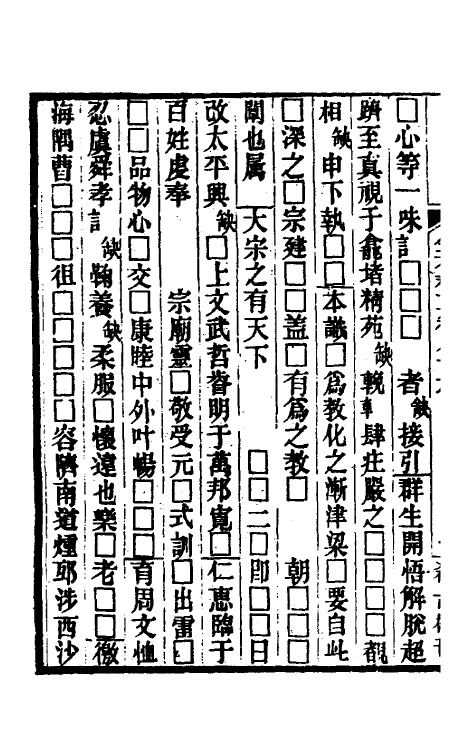 □心等一味訁□□□　者缺接引群生開悟解脫超
躋至真視于龕堵精苑缺輓事肆庄嚴之□□□□□覩
相缺申下執□□本議□爲教化之漸津梁□要自此
□深之□宗建□□盖□有爲之教□　　朝□□□
闡也属　大宗之有天下　　　□□二□卽□□日
改太平興缺□上文武哲眷明于萬邦寬□仁惠臨于
百姓虔奉　　　宗廟靈□敬受元□式訓□出雷□
□□品物心□交□康睦中外叶暢□□□育周文恤
忍虞舜孝訁缺鞠養缺柔服□懷遠也樂□老□□徽
海隅曹□□□徂□□□□□容隮南道煙郅涉西沙